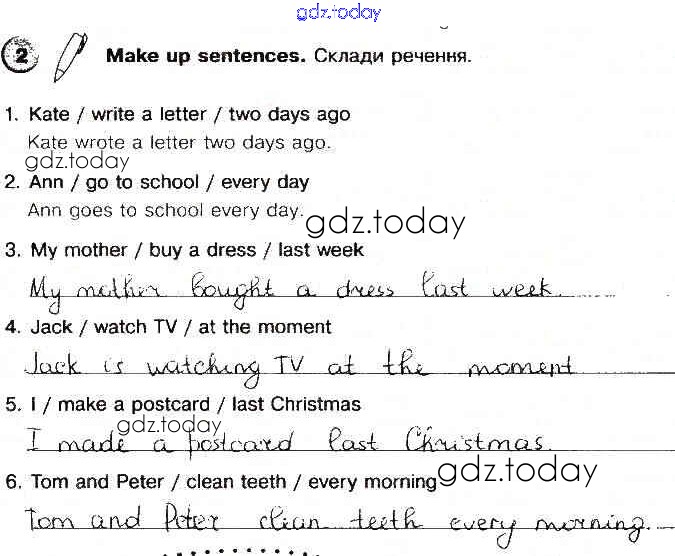 gdz.today
2 Make up sentences. Склади речення.
1. Kate / write a letter / two days ago
Kate wrote a letter two days ago.
gdz.today
2. Ann / go to school / every day
Ann goes to school every day.
gdz.today
3. My mother / buy a dress / last week
My mother bought a dress last week.
4. Jack / watch TV / at the moment
Jack is watching TV at the moment
5. I / make a postcard / last Christmas
gdz.today
I made a postcard last Christmas.
6. Tom and Peter / clean teeth / every morning
gdz.today
Tom and Peter clean teeth every morning.